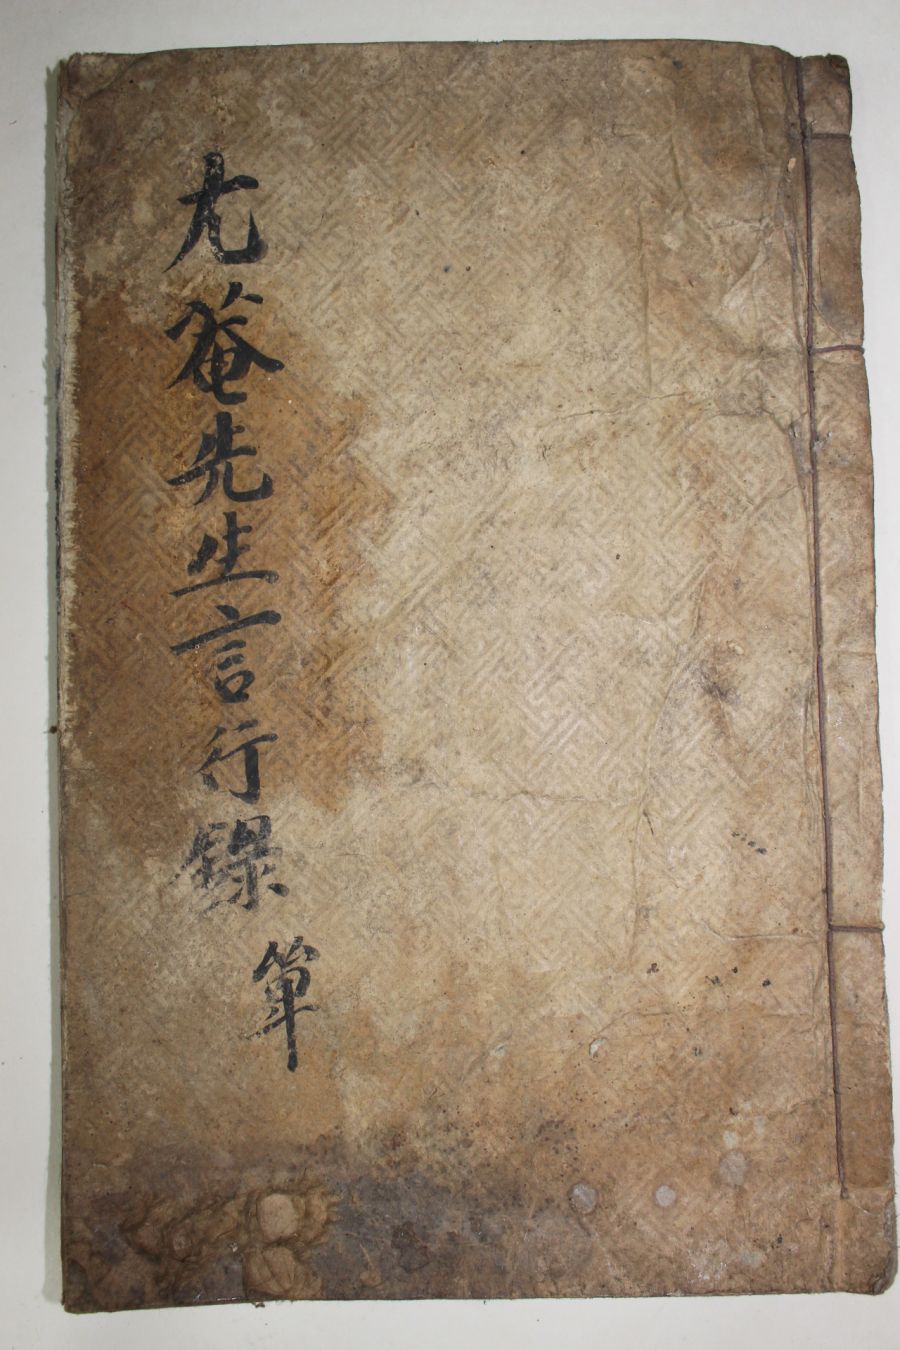 尤菴先生言行錄
單